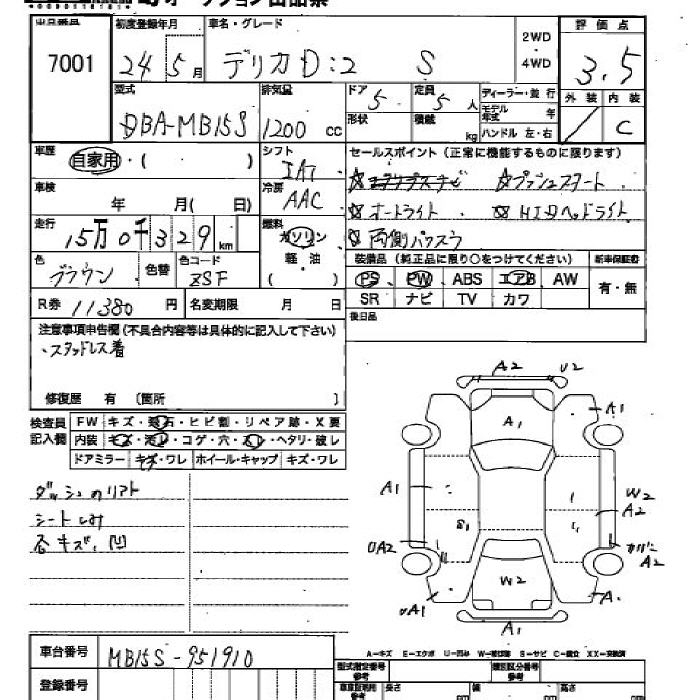 オークション出品票
出品番号 初度登録年月 車名・グレード 2WD・4WD 評価点
7001 24年5月 デリカD:2 S 3.5
型式 排気量 ドア 5 定員 5人 ディーラー・並行 外装 内装
DBA-MB15S 1200cc 形状 積載 kg モデル年式 年 ハンドル 左・右 C
車歴 自家用・( ) シフト IAT セールスポイント(正常に機能するものに限ります)
車検 年 月( 日) 冷房 AAC ☆プッシュスタート
☆オートライト ☆HIDヘッドライト
走行 15万0千329km 燃料 ガソリン 軽・油 ( ) ☆両側パワスラ
色 ブラウン 色替 色コード ZSF
装備品(純正品に限り○をつけてください) 新車保証書
PS PW ABS エアB AW 有・無
SR ナビ TV カワ
R券 11380円 名変期限 月 日 後日品
注意事項申告欄(不具合内容等は具体的に記入して下さい)
・スタッドレス着
修復歴 有 〔箇所 〕
検査員記入欄 FW キズ・飛石・ヒビ割・リペア跡・X要
内装 キズ・汚レ・コゲ・穴・スレ・ヘタリ・破レ
ドアミラー キズ・ワレ ホイール・キャップ キズ・ワレ
ダッシュのリフト
シートしみ
各キズ、凹
A2 U2
A1 A1
A1 W2 A2
S1
UA2 カバーA2
W2
UA1 A
A1
A-キズ E-エクボ U-凹み W-補修跡 S-サビ C-腐食 XX-交換済
車台番号 MB15S-951910
登録番号
型式指定番号 参考 類別区分番号 参考
長さ cm 幅 cm 高さ cm